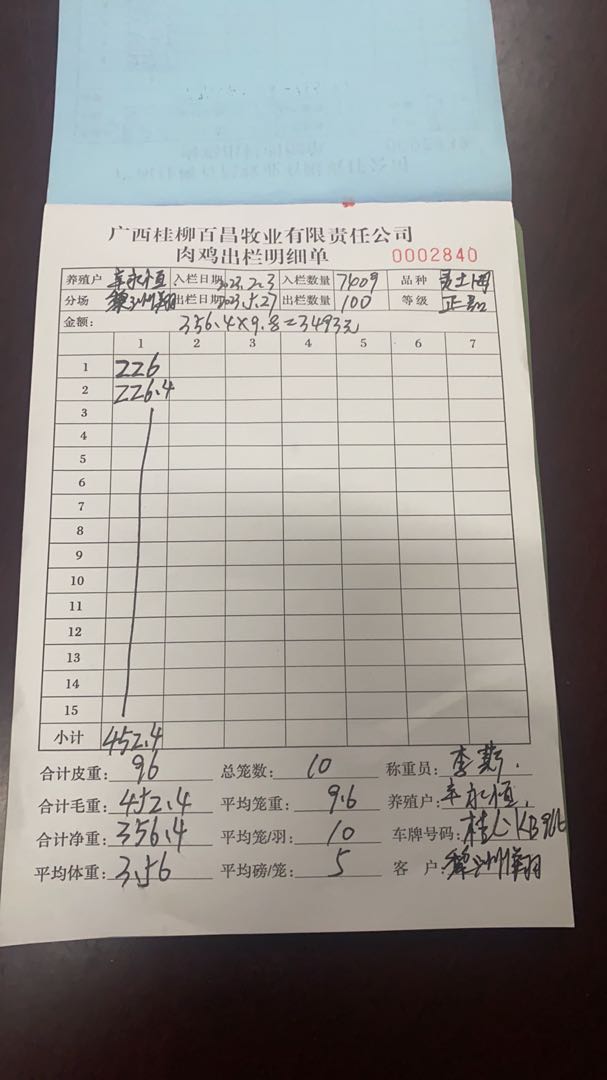 广西桂柳百昌牧业有限责任公司
肉鸡出栏明细单 0002840
养殖户 辛永恒 入栏日期 2023.2.3 入栏数量 7409 品种
分场 出栏日期 2023.5.27 出栏数量 100 等级 正品
金额: 356.4×9.8=3493元
1 2 3 4 5 6 7
1 226
2 226.4
3
4
5
6
7
8
9
10
11
12
13
14
15
小计 452.4
合计皮重: 96 总笼数: 10 称重员: 李
合计毛重: 452.4 平均笼重: 9.6 养殖户: 辛永恒
合计净重: 356.4 平均笼/羽: 10 车牌号码:
平均体重: 3.56 平均磅/笼: 5 客户: